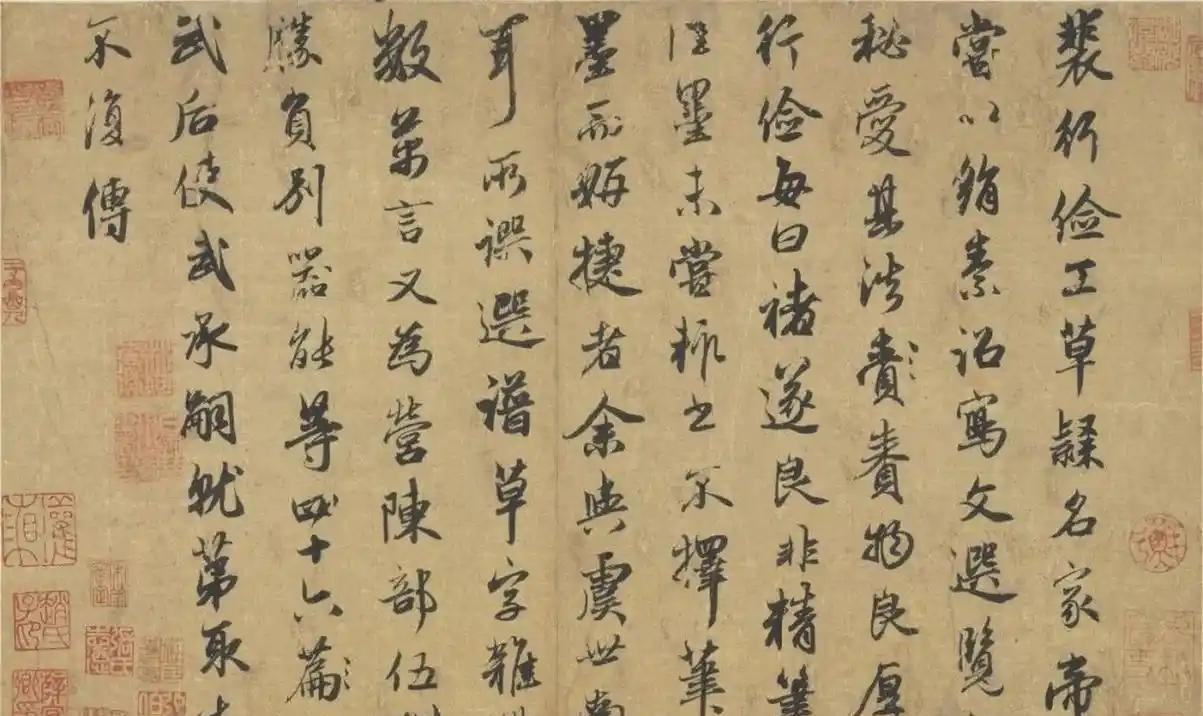 裴行俭工草隸名家帝
嘗以絹素詔寫文選覽
秘愛其法賚〻賚物良厚
行俭每曰褚遂良非精筆
佳墨未嘗輒書不擇筆
墨而妍捷者余與虞世南
耳所譔選譜草字雜
數萬言又為營陳部伍
勝負別器能等四十六篇〻
武后使武承嗣就第取
不復傳